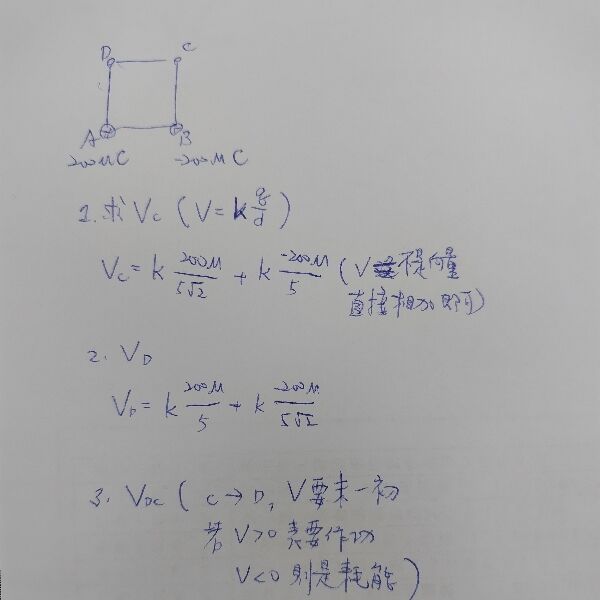 D C
A B
200μC -200μC
1. 求 Vc (V = k q/d)
Vc = k 200μ/5√2 + k -200μ/5 (V 不是向量
直接相加即可)
2. VD
VD = k 200μ/5 + k -200μ/5√2
3. VDC ( C → D, V要末-初
若 V>0 表要作功
V<0 則是耗能 )